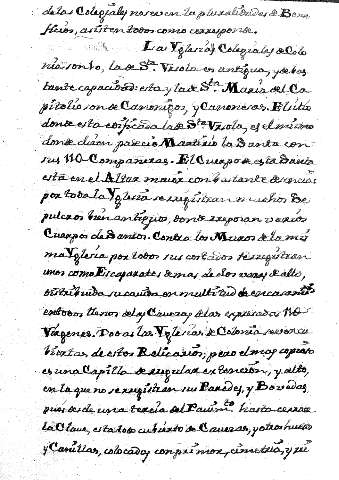 de las Colegiales no sea en la pluralidades de Bene-
ficios, asisten todos como corresponde.
La Yglesias Colegiales de Colo-
nia son 10, la de Sta. Ursola es antigua, y de bas-
tante capacidad: esta y la de Sta. Maria del Ca-
pitolio son de Canonigos, y Canonesas. El sitio
donde esta edificada la de Sta. Ursola, es el mismo
donde dicen padecio Martirio la Santa con
sus 110 Compañeras. El Cuerpo de esta Santa
está en el Altar maior con bastante decencia:
por toda la Yglesia se registran muchos Se-
pulcros bien antiguos, donde reposan varios
Cuerpos de Santos. Contra los Muros de la mis-
ma Yglesia por todos sus costados se registran
unos como Escaparates de mas de dos varas de alto,
distribuida su cavida en multitud de encasamtos.
todos llenos de Calaveras de las expresadas 110
Virgenes. Todas las Yglesias de Colonia se ven cu-
biertas de estos Relicarios; pero el mas copioso
es una Capilla de regular extencion, y alto,
en la que no se registran sus Paredes, y Bovedas,
pues desde una tercia del Pavimto. hasta cerrar
la Clave, esta todo cubierto de Calaveras, y otros huesos
y Canillas, colocados con primor, cimetria, y